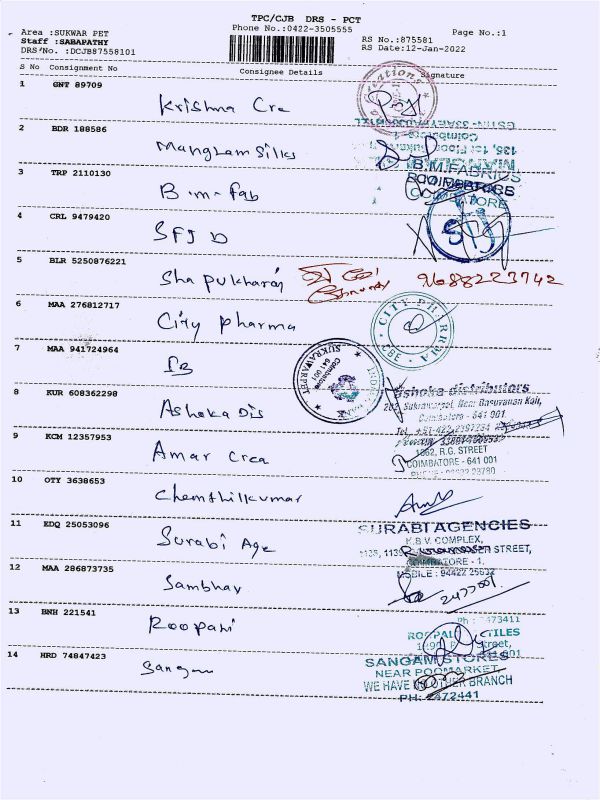 TPC/CJB DRS - PCT
Phone No.:0422-3505555
Page No.:1
Area :SUKWAR PET
Staff :SABAPATHY
DRS No. :DCJB87558101
RS No.:875581
RS Date:12-Jan-2022
S No Consignment No Consignee Details Signature
1 GNT 89709
Krishna Cre
2 BDR 188586
Manglam silks
3 TRP 2110130
B.m. Fab
B.M.FABRICS
COIMBATORE
4 CRL 9479420
SFJ D
5 BLR 5250876221
Sha pukharaj 9688223742
6 MAA 276812717
City pharma
CITY PHARMA
CBE
7 MAA 941724964
IB
SUKRAWARPET
Coimbatore
641 001
8 KUR 608362298
Ashoka Dis
ashoka distributors
Coimbatore - 641 001
9 KCM 12357953
Amar Crea
R.G. STREET
COIMBATORE - 641 001
10 OTY 3638653
Chemthilkumar
11 EDQ 25053096
Surabi Age
SURABI AGENCIES
K.B.V. COMPLEX,
STREET,
COIMBATORE - 1.
MOBILE : 94422 25632
12 MAA 286873735
Sambhav
13 BNH 221541
Roopani
14 HRD 74847423
Sangam
SANGAM STORES
NEAR POOMARKET
WE HAVE NO OTHER BRANCH
PH: 2472441